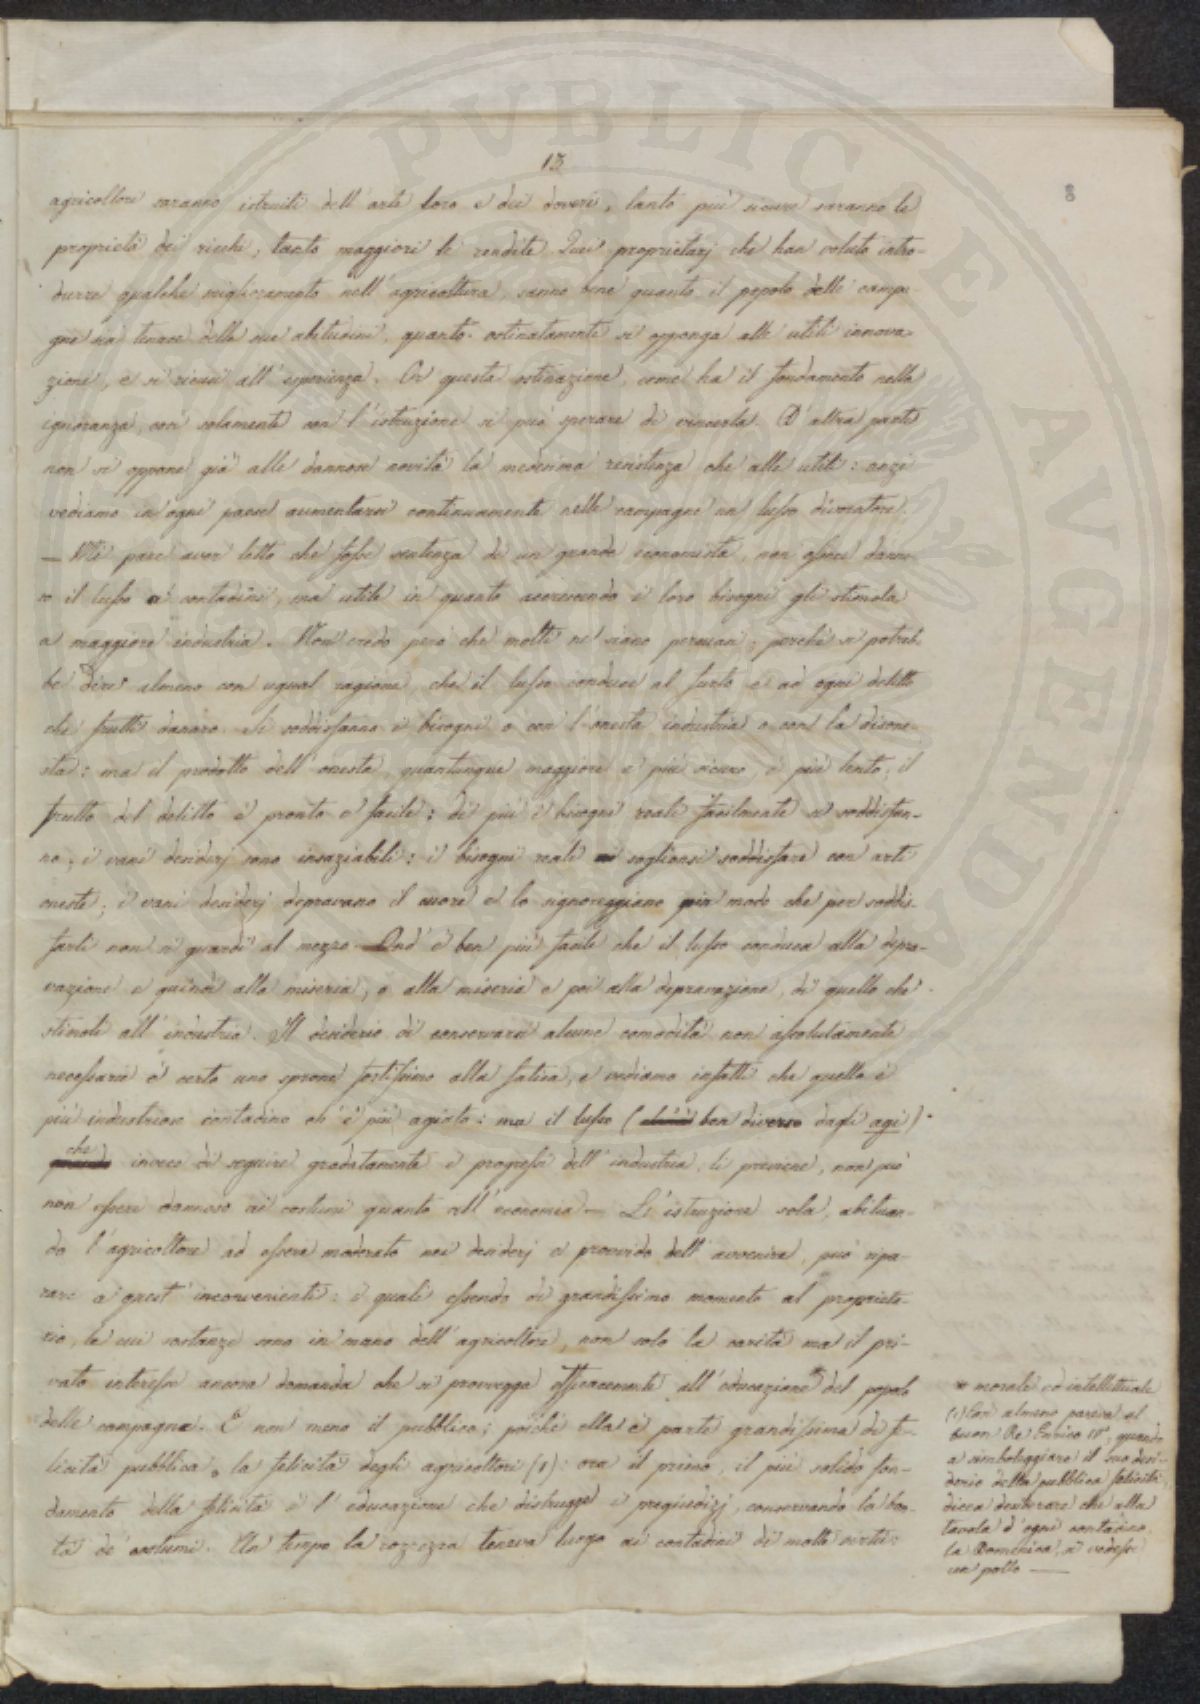 13
8
agricoltori saranno istruiti dell'arte loro e dei doveri, tanto più sicure saranno le
proprietà dei ricchi, tanto maggiori le rendite. Quei proprietarj che han voluto intro-
durre qualche miglioramento nell'agricoltura, sanno bene quanto il popolo delle campa-
gne sia tenace delle sue abitudini, quanto ostinatamente si opponga alle utili innova-
zioni, e si ricusi all'esperienza. Or questa ostinazione, come ha il fondamento nella
ignoranza, così solamente con l'istruzione si può sperare di vincerla. D'altra parte
non si oppone già alle dannose novità la medesima resistenza che alle utili: anzi
vediamo in ogni paese aumentarsi continuamente nelle campagne un lusso divoratore.
— Mi pare aver letto che fosse sentenza di un grande economista, non esser danno-
so il lusso a' contadini, ma utile in quanto accrescendo i loro bisogni gli stimola
a maggiore industria. Non credo però che molti ne siano persuasi; perchè si potreb-
be dire almeno con ugual ragione, che il lusso conduce al furto e ad ogni delitto
che frutti danaro. Si soddisfanno i bisogni o con l'onesta industria o con la disone-
sta: ma il prodotto dell'onesta, quantunque maggiore e più sicuro, è più lento; il
frutto del delitto è pronto e facile: di più i bisogni reali facilmente si soddisfan-
no, i vani desiderj sono insaziabili: i bisogni reali soglionsi soddisfare con arti
oneste; i vani desiderj depravano il cuore e lo signoreggiano in modo che per soddis-
farli non si guardi al mezzo. Ond'è ben più facile che il lusso conduca alla depra-
vazione e quindi alla miseria, o alla miseria e poi alla depravazione, di quello che
stimoli all'industria. Il desiderio di conservarsi alcune comodità non assolutamente
necessarie è certo uno sprone fortissimo alla fatica, e vediamo infatti che quello è
più industrioso contadino ch'è più agiato: ma il lusso (ben diverso dagli agi)
che invece di seguire gradatamente i progressi dell'industria, li previene, non può
non essere dannoso ai costumi quanto all'economia — L'istruzione sola, abituan-
do l'agricoltore ad essere moderato nei desiderj e provvido dell'avvenire, può ripa-
rare a quest'inconvenienti: i quali essendo di grandissimo momento al proprieta-
rio, le cui sostanze sono in mano dell'agricoltore, non solo la carità ma il pri-
vato interesse ancora domanda che si provvegga efficacemente all'educazione* del popolo
delle campagne. E non meno il pubblico; poichè ella è parte grandissima di fe-
licità pubblica, la felicità degli agricoltori (1): ora il primo, il più solido fon-
damento della felicità è l'educazione che distrugge i pregiudizj, conservando la bon-
tà de' costumi. Un tempo la rozzezza teneva luogo ai contadini di molte virtù:
* morale ed intellettuale
(1) Così almeno pareva al
buon Re Enrico IV°, quando
a simboleggiare il suo desi-
derio della pubblica felicità,
dicea desiderare che alla
tavola d'ogni contadino
la Domenica, si vedesse
un pollo —